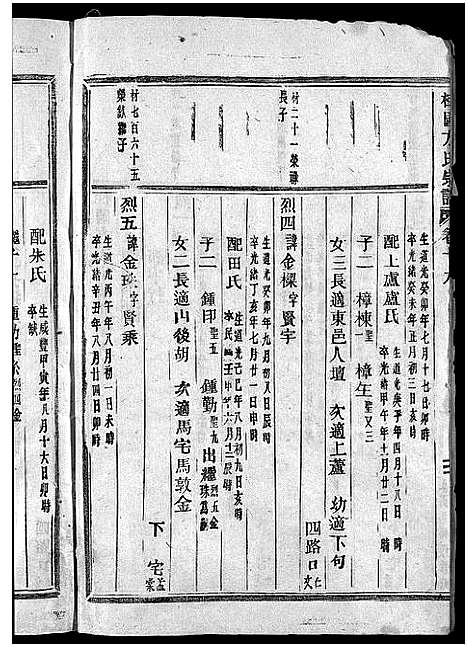 方氏宗譜
生道光癸卯年七月十七日卯時
卒光緒癸未年正月初三日亥時
配上盧盧氏
生道光癸卯年四月十八日 時
卒光緒甲午年十一月廿二日 時
子二 樟棟聖一 樟生聖又三
女三長適東邑人壇 次適上蘆 幼適下旬
四路口
村二十一榮禕
長子
烈四諱金樑字賢宇
生道光癸卯年八月初八日辰時
卒光緒丁亥年七月廿一日申時
配田氏
生道光己巳年八月初九日亥時
卒民國壬申年六月十二辰時
子二 鍾印聖五 鍾勤聖九出繼烈五金珠為嗣
女二長適山後胡 次適馬宅馬敦金
下宅
村七百六十五
榮欽繼子
烈五諱金珠字賢乘
生道光丙午年八月初一日未時
卒光緒辛丑年八月廿四日卯時
配朱氏
生咸豐甲寅年八月十六日卯時
卒缺